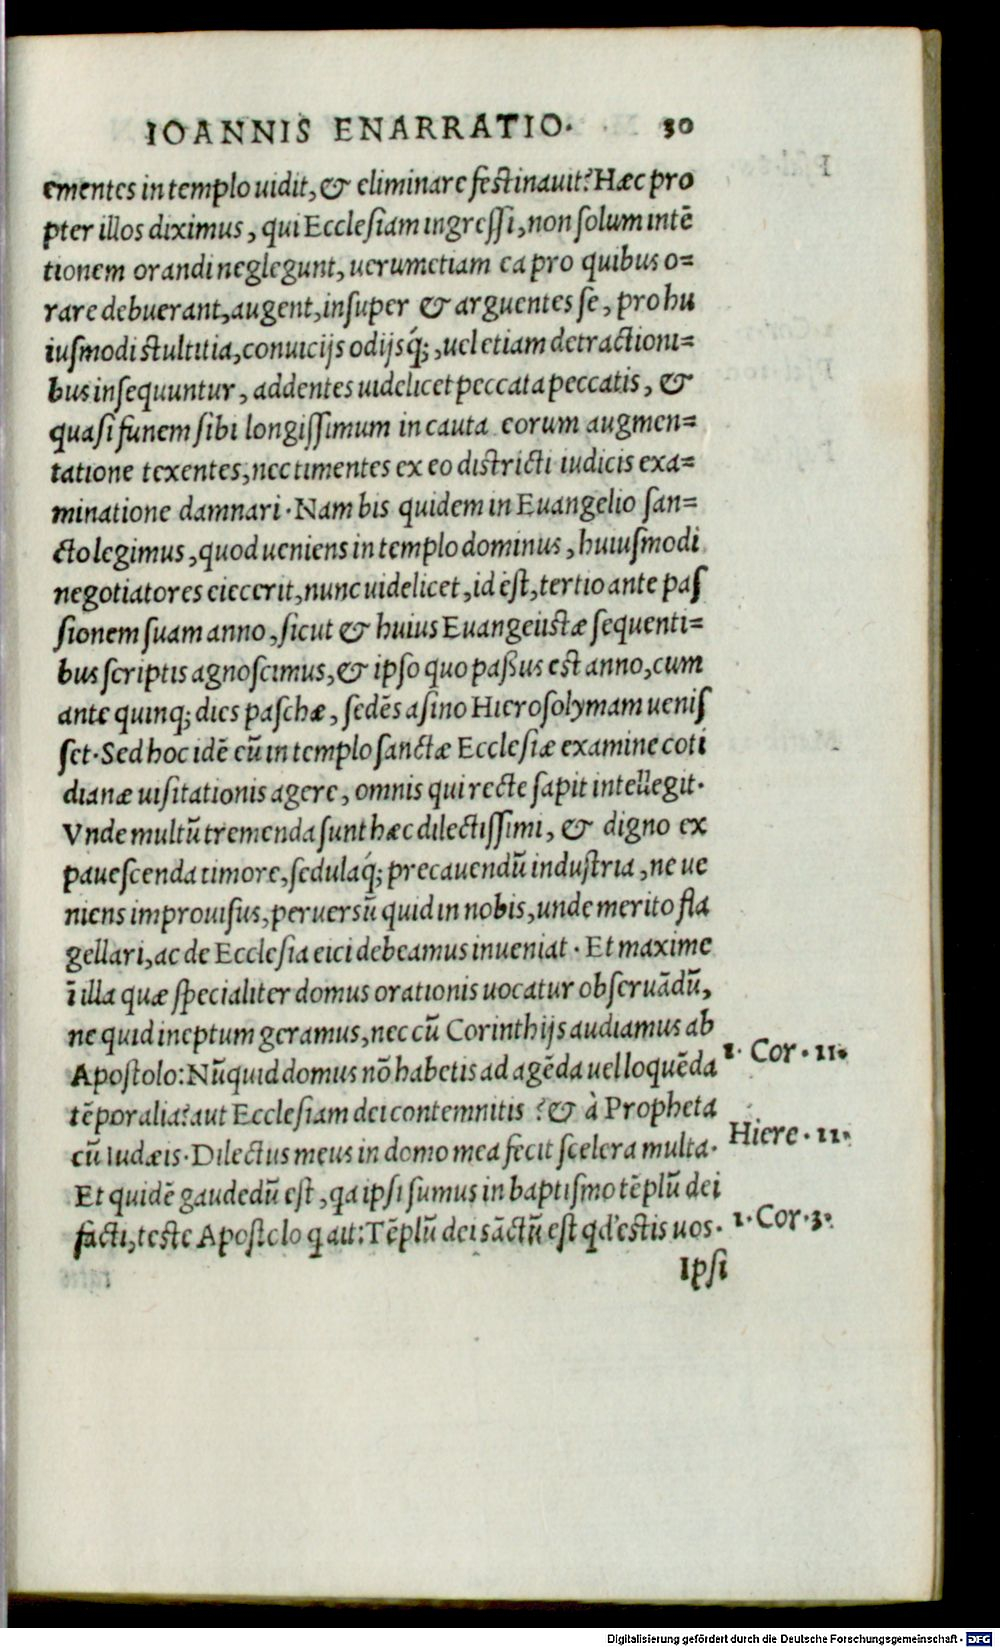 IOANNIS ENARRATIO. 30
ementes in templo uidit, & eliminare festinauit? Hæc pro
pter illos diximus, qui Ecclesiam ingressi, non solum intē
tionem orandi neglegunt, uerumetiam ea pro quibus o=
rare debuerant, augent, insuper & arguentes se, pro hu
iusmodi stultitia, conuicijs odijsq́;, uel etiam detractioni=
bus insequuntur, addentes uidelicet peccata peccatis, &
quasi funem sibi longissimum incauta eorum augmen=
tatione texentes, nec timentes ex eo districti iudicis exa=
minatione damnari. Nam bis quidem in Euangelio san=
cto legimus, quod ueniens in templo dominus, huiusmodi
negotiatores eiecerit, nunc uidelicet, id est, tertio ante pas
sionem suam anno, sicut & huius Euangeiistæ sequenti=
bus scriptis agnoscimus, & ipso quo paßus est anno, cum
ante quinq; dies paschæ, sedēs asino Hierosolymam uenis
set. Sed hoc idē eū in templo sanctæ Ecclesiæ examine coti
dianæ uisitationis agere, omnis qui recte sapit intellegit.
Vnde multū tremenda sunt hæc dilectissimi, & digno ex
pauescenda timore, sedulaq́; precauendū industria, ne ue
niens improuisus, peruersū quid in nobis, unde merito fla
gellari, ac de Ecclesia eici debeamus inueniat. Et maxime
ī illa quæ specialiter domus orationis uocatur obseruādū,
ne quid ineptum geramus, nec cū Corinthijs audiamus ab
Apostolo: Nūquid domus nō habetis ad agēda uel loquēda
1. Cor. 11.
tēporalia? aut Ecclesiam dei contemnitis ? & à Propheta
Hiere. 11.
cū Iudæis. Dilectus meus in domo mea fecit scelera multa.
Et quidē gaudedū est, qa ipsi sumus in baptismo tēplū dei
facti, teste Apostolo q ait: Tēplū dei sāctū est qd' estis uos.
1. Cor. 3.
Ipsi
Digitalisierung gefördert durch die Deutsche Forschungsgemeinschaft - DFG